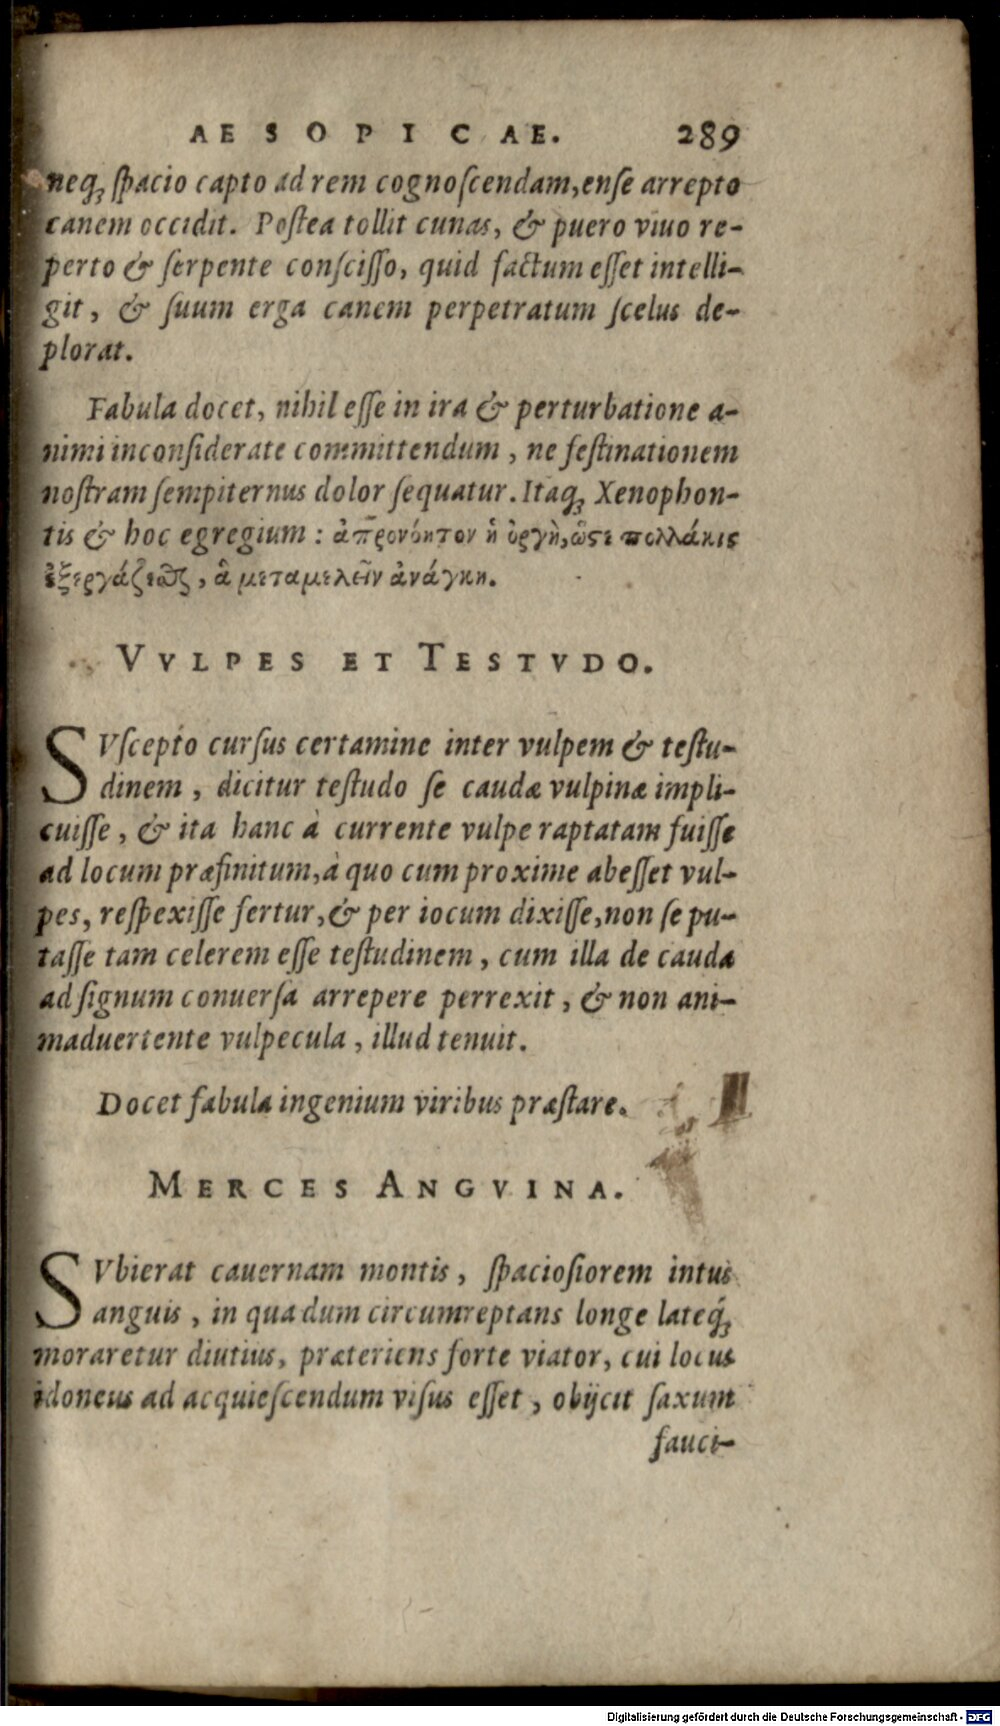 AESOPICAE. 289
neq́ꝫ ſpacio capto ad rem cognoſcendam, enſe arrepto
canem occidit. Poſtea tollit cunas, & puero viuo re-
perto & ſerpente conſciſſo, quid factum eſſet intelli-
git, & ſuum erga canem perpetratum ſcelus de-
plorat.
Fabula docet, nihil eſſe in ira & perturbatione a-
nimi inconſiderate committendum, ne feſtinationem
noſtram ſempiternus dolor ſequatur. Itaq́ꝫ Xenophon-
tis & hoc egregium: ἀπρονόητον ἡ ὀργὴ, ὥϛε πολλάκις
ἐξεργάζεται, ἃ μεταμελεῖν ἀνάγκη.
VVLPES ET TESTVDO.
SVſcepto curſus certamine inter vulpem & teſtu-
dinem, dicitur teſtudo ſe caudæ vulpinæ impli-
cuiſſe, & ita hanc à currente vulpe raptatam fuiſſe
ad locum præfinitum, à quo cum proxime abeſſet vul-
pes, reſpexiſſe fertur, & per iocum dixiſſe, non ſe pu-
taſſe tam celerem eſſe teſtudinem, cum illa de cauda
ad ſignum conuerſa arrepere perrexit, & non ani-
maduertente vulpecula, illud tenuit.
Docet fabula ingenium viribus præſtare.
MERCES ANGVINA.
SVbierat cauernam montis, ſpacioſiorem intus
anguis, in qua dum circumreptans longe lateq́ꝫ
moraretur diutius, præteriens forte viator, cui locus
idoneus ad acquieſcendum viſus eſſet, obijcit ſaxum
fauci-
Digitalisierung gefördert durch die Deutsche Forschungsgemeinschaft - DFG